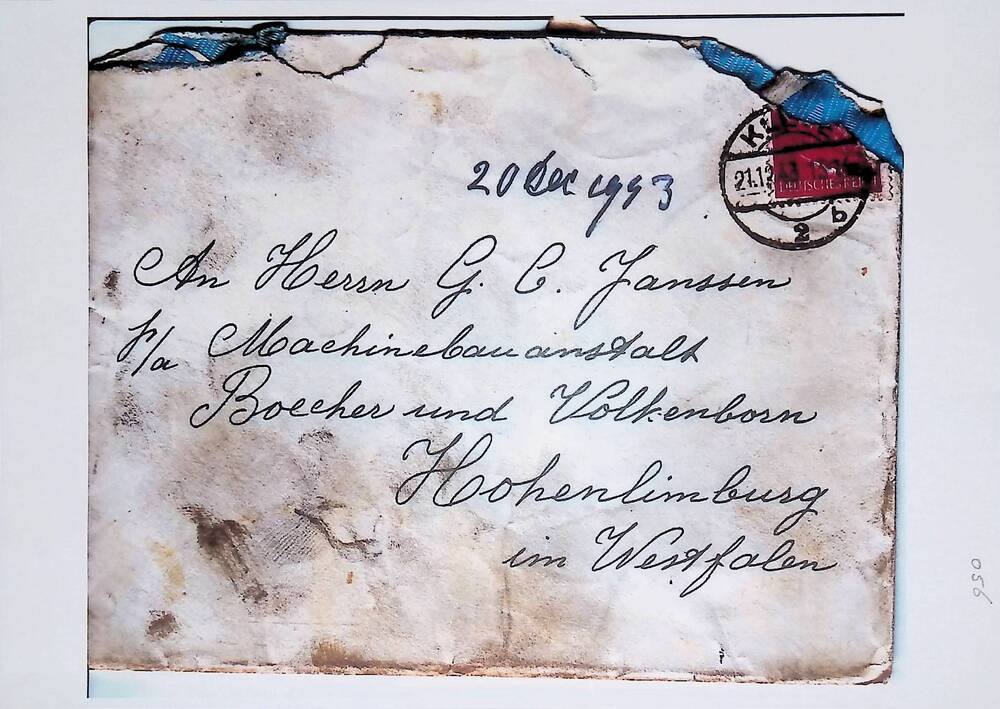 20 Dec 1993
21.12.43
DEUTSCHES REICH
b
2
An Herrn G. C. Janssen
F/a Machinebauanstalt
Boecher und Volkenborn
Hohenlimburg
im Westfalen
056